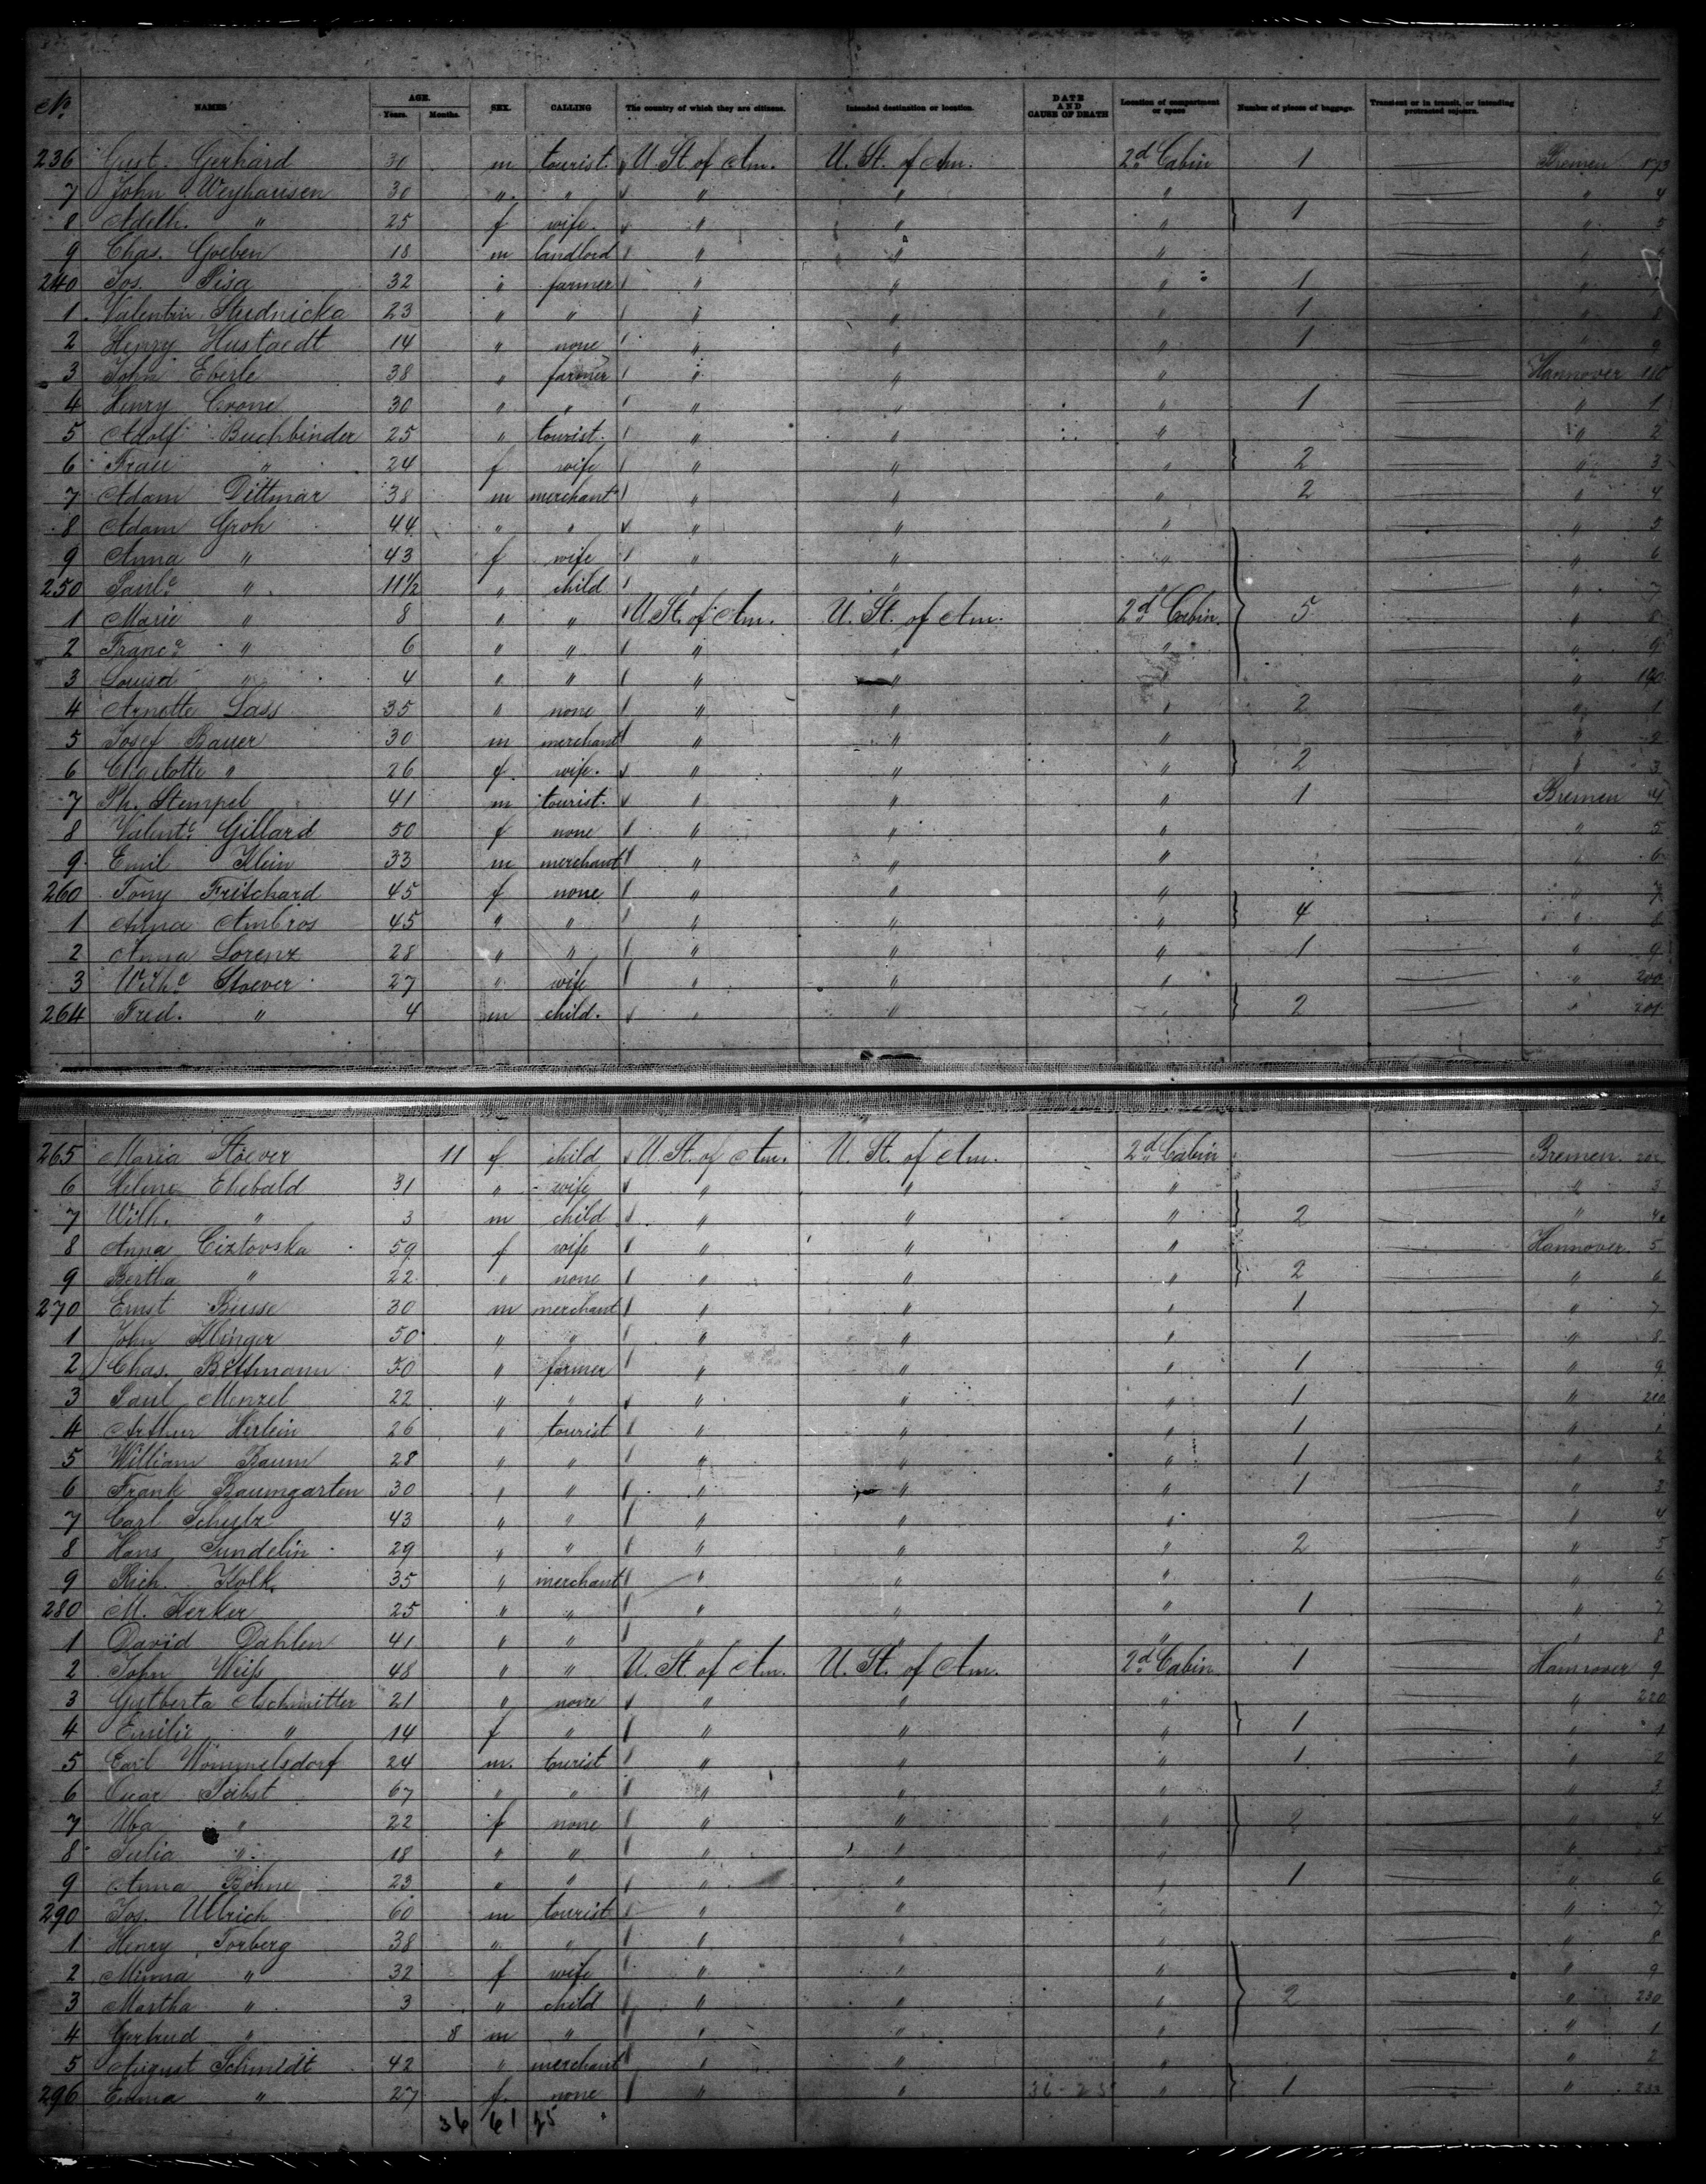 No. NAMES AGE. Years. Months. SEX. CALLING The country of which they are citizens. Intended destination or location. DATE AND CAUSE OF DEATH Location of compartment or space Number of pieces of baggage. Transient or in transit, or intending protracted sojourn.
236 Gust. Gerhard 31 m tourist. U. St. of Am. U. St. of Am. 2d Cabin 1 Bremen 173
7 John Weyhausen 30 " " " " " " 4
8 Adelh. " 25 f wife. " " " } 1 " 5
9 Chas. Goeben 18 m landlord " " "
240 Jos. Pisa 32 " farmer " " " 1
1 Valentin Studnicka 23 " " " " " 1 " 8
2 Henry Hustaedt 14 " none " " " 1 " 9
3 John Eberle 38 " farmer " " " Hannover 180
4 Henry Crone 30 " " " " " 1 " 1
5 Adolf Buchbinder 25 " tourist. " " " " 2
6 Frau " 24 f wife " " " } 2 " 3
7 Adam Dittmar 38 m merchant " " " 2 " 4
8 Adam Groh 44 " " " " " " 5
9 Anna " 43 f wife " " " " 6
250 Paula " 11½ " child " " " " 7
1 Marie " 8 " " U. St. of Am. U. St. of Am. 2d Cabin } 5 " 8
2 Franca " 6 " " " " " " 9
3 Louisa " 4 " " " " " " 190
4 Arnotte Lass 35 " none " " " 2 " 1
5 Josef Bauer 30 m merchant " " " " 2
6 Charlotte " 26 f wife. " " " } 2 " 3
7 Ph. Stempel 41 m tourist. " " " 1 Bremen 4
8 Valente Gillard 50 f none " " " " 5
9 Emil Klein 33 m merchant " " " " 6
260 Tony Fritchard 45 f none " " " " 7
1 Anna Ambros 45 " " " " " } 4 "
2 Anna Lorenz 28 " " " " " 1 " 9
3 Wilhe Stoever 27 " wife " " " " 200
264 Fred. " 4 m child. " " " } 2 " 201
265 Maria Stoever 11 f child U. St. of Am. U. St. of Am. 2d Cabin Bremen. 202
6 Helene Ehebald 31 " wife " " " " 3
7 Wilh. " 3 m child " " " } 2 " 4
8 Anna Ciztovska 59 f wife " " " Hannover. 5
9 Bertha " 22 " none " " " } 2 " 6
270 Ernst Busse 30 m merchant " " " 1 " 7
1 John Klinger 50 " " " " " " 8
2 Chas. 50 " farmer " " " 1 " 9
3 Paul Menzel 22 " " " " " 1 " 210
4 Arthur Herlein 26 " tourist " " " 1 " 1
5 William Baum 28 " " " " " 1 " 2
6 Frank Baumgarten 30 " " " " " 1 " 3
7 Carl Schulz 43 " " " " " " 4
8 Hans Sundelin 29 " " " " " 2 " 5
9 Rich. Kolk 35 " merchant " " " " 6
280 M. Kerker 25 " " " " " 1 " 7
1 David Dahlen 41 " " " " " " 8
2 John Weiß 48 " " U. St. of Am. U. St. of Am. 2d Cabin 1 Hannover 9
3 21 " none " " " " 220
4 Emilie " 14 f " " " " } 1 " 1
5 Carl Wommelsdorf 24 m. tourist " " " 1 " 2
6 Pabst 67 " " " " " " 3
7 " 22 f none " " " } 2 " 4
8 Julia " 18 " " " " " " 5
9 Anna Böhne 23 " " " " " 1 " 6
290 Jos. Ullrich 60 m tourist " " " " 7
1 Henry Torberg 38 " " " " " " 8
2 Minna " 32 f wife " " " " 9
3 Martha " 3 " child " " " } 2 " 230
4 Gertrud " 8 m " " " " " 1
5 August Schmidt 42 " merchant " " " " 2
296 Emma " 27 f. none " " " } 1 " 233
36 61 25